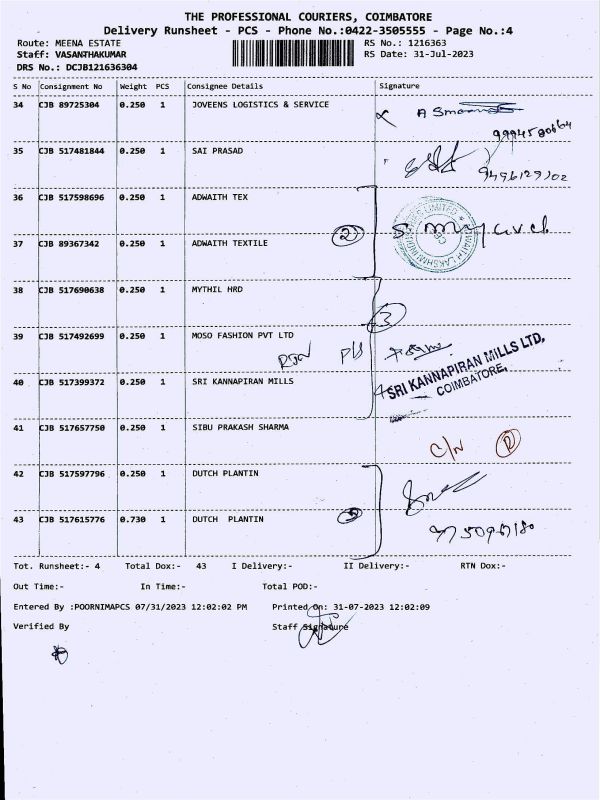 THE PROFESSIONAL COURIERS, COIMBATORE
Delivery Runsheet - PCS - Phone No.:0422-3505555 - Page No.:4
Route: MEENA ESTATE RS No.: 1216363
Staff: VASANTHAKUMAR RS Date: 31-Jul-2023
DRS No.: DCJB121636304
S No Consignment No Weight PCS Consignee Details Signature
34 CJB 89725304 0.250 1 JOVEENS LOGISTICS & SERVICE
35 CJB 517481844 0.250 1 SAI PRASAD
36 CJB 517598696 0.250 1 ADWAITH TEX
37 CJB 89367342 0.250 1 ADWAITH TEXTILE 2
38 CJB 517690638 0.250 1 MYTHIL HRD
3
39 CJB 517492699 0.250 1 MOSO FASHION PVT LTD
40 CJB 517399372 0.250 1 SRI KANNAPIRAN MILLS SRI KANNAPIRAN MILLS LTD,
COIMBATORE.
41 CJB 517657750 0.250 1 SIBU PRAKASH SHARMA
C/N
42 CJB 517597796 0.250 1 DUTCH PLANTIN
43 CJB 517615776 0.730 1 DUTCH PLANTIN
Tot. Runsheet:- 4 Total Dox:- 43 I Delivery:- II Delivery:- RTN Dox:-
Out Time:- In Time:- Total POD:-
Entered By :POORNIMAPCS 07/31/2023 12:02:02 PM Printed On: 31-07-2023 12:02:09
Verified By Staff Signature